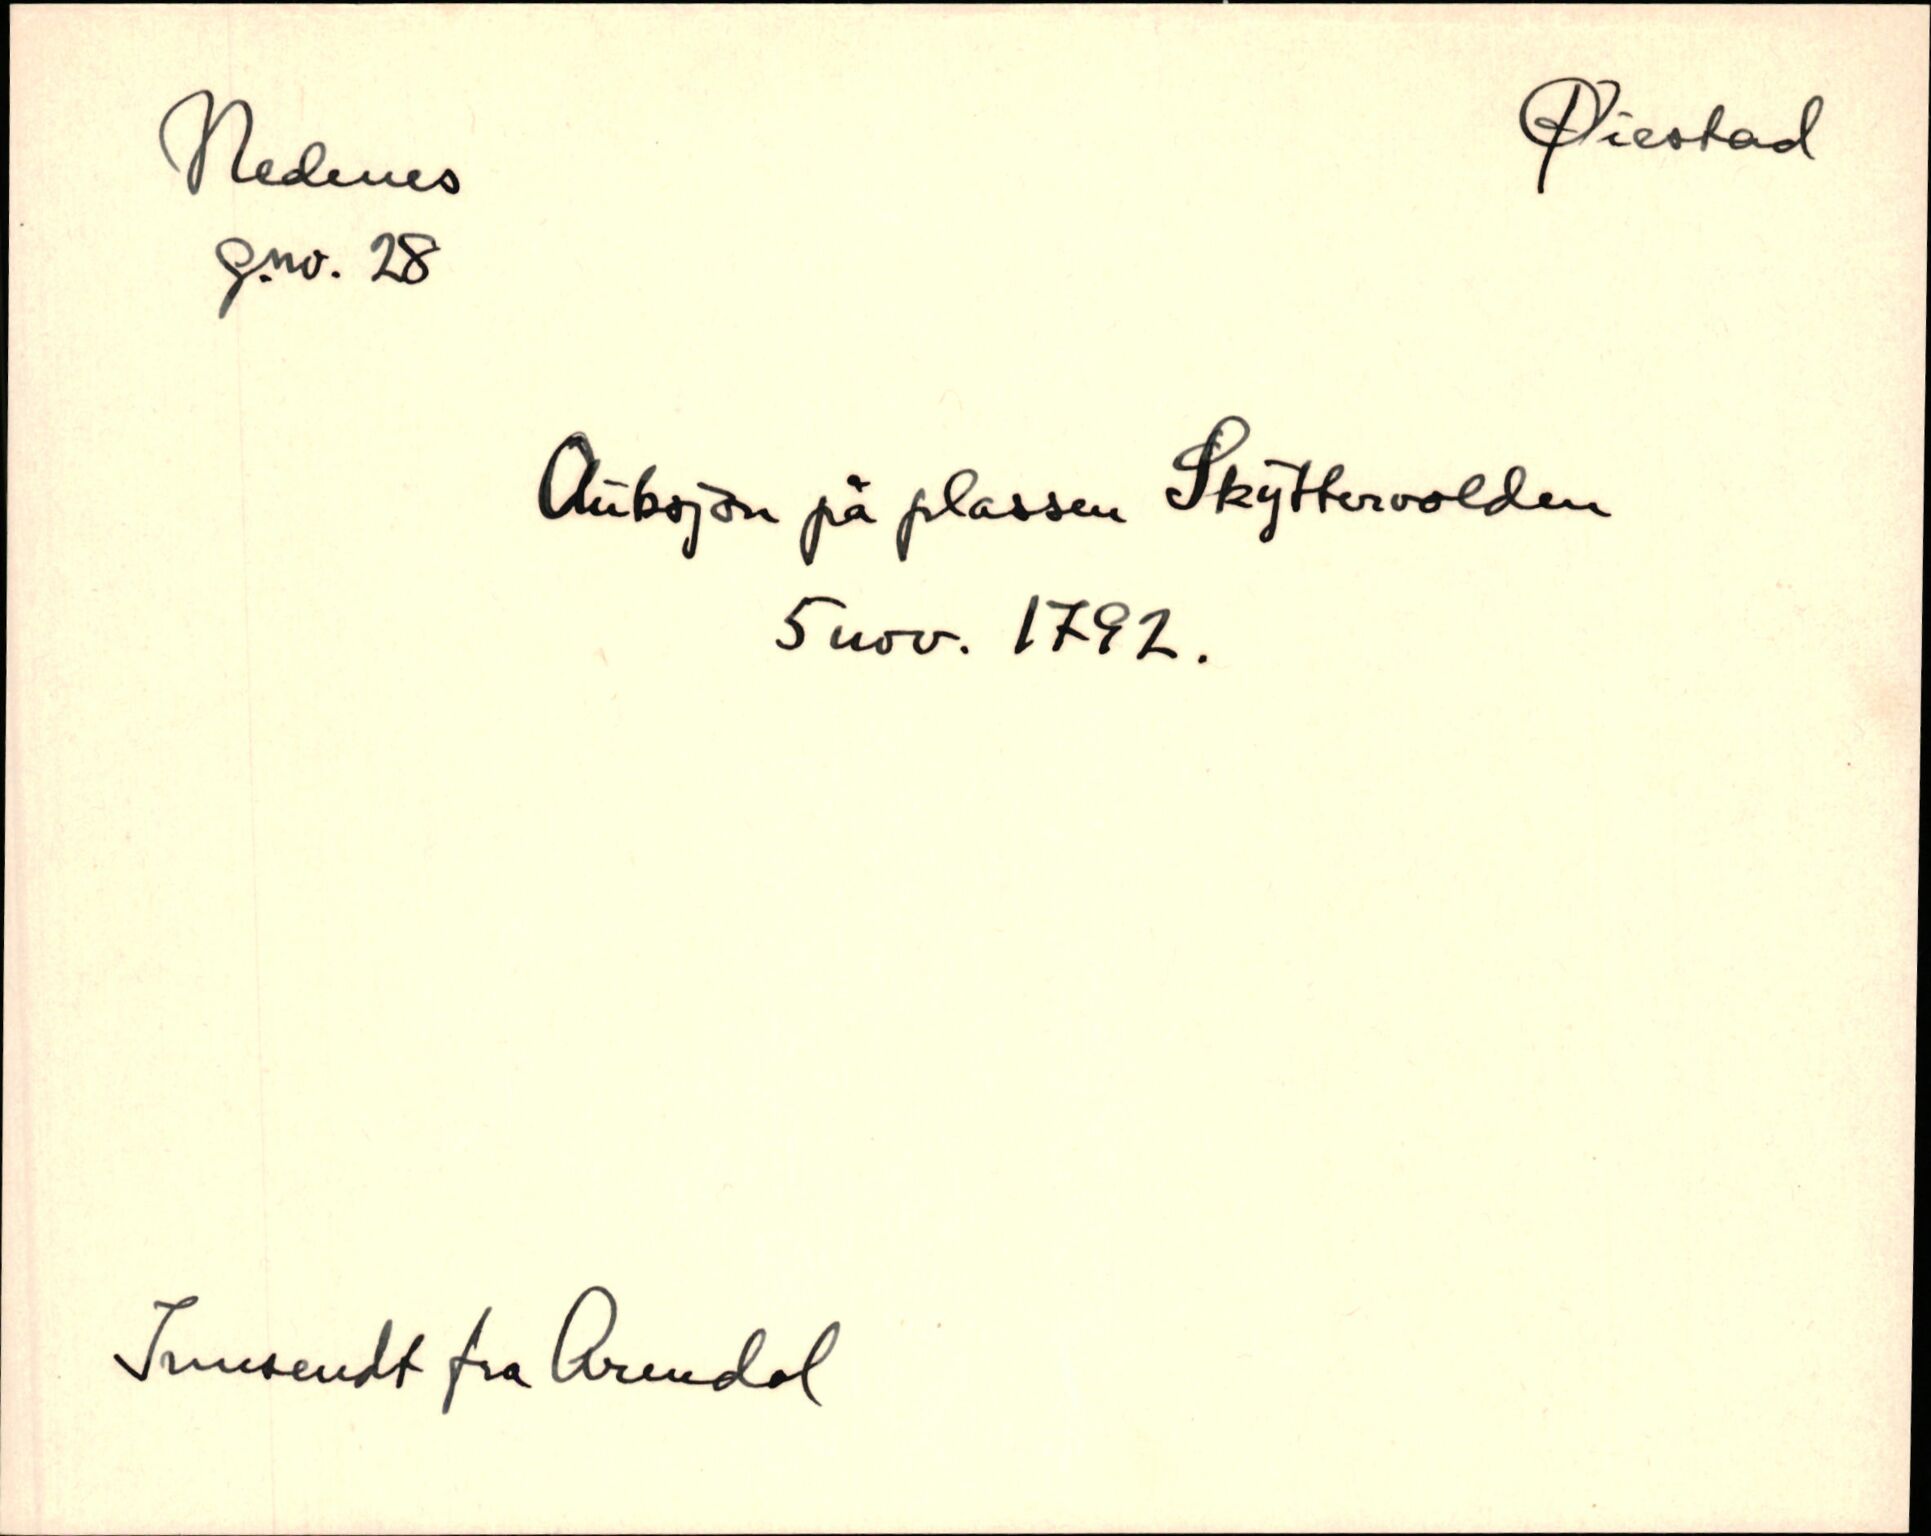 Nedenes
g.no. 28
Øiestad
Auksjon på plassen Skyttervolden
5 nov. 1792.
Innsendt fra Arendal